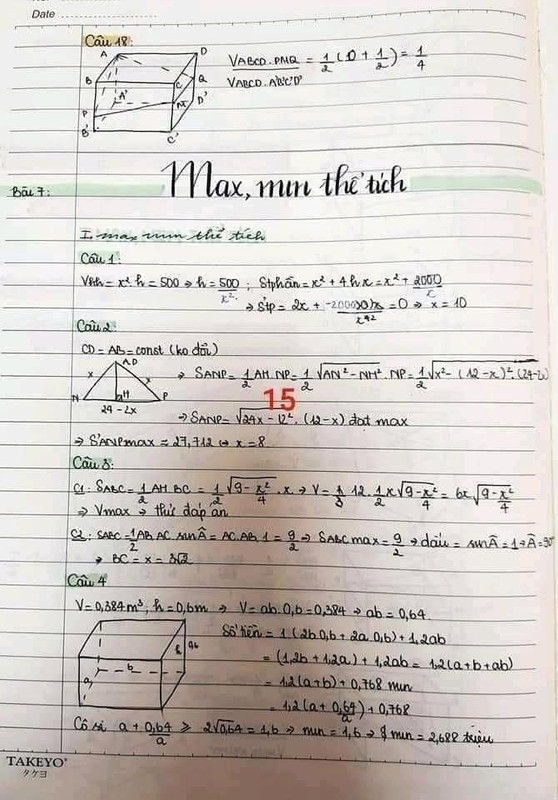 Date
Câu 18:
A D B C Q A' M D' P B' C'
VABCD.PMQ / VABCD.A'B'C'D' = 1/2 (0 + 1/2) = 1/4
Bài 7:
Max, min thể tích
I. max min thể tích
Câu 1:
Vhh = x². h = 500 → h = 500/x² ; Stphần = x² + 4hx = x² + 2000/x
→ S'tp = 2x + = 0 → x = 10
Câu 2:
CD = AB = const (ko đổi)
A,D x x N H P 24 - 2x
→ SANP = 1/2 AH. NP = 1/2 √AN² - NH². NP = 1/2 √x² - (12 - x)². (24-2x)
15
→ SANP = √24x - 12². (12-x) đạt max
→ SANPmax = 27,712 ↔ x = 8
Câu 3:
C1: SABC = 1/2 AH.BC = 1/2 √9 - x²/4 . x → V = 1/3 12. 1/2 x √9 - x²/4 = 6x √9 - x²/4
→ Vmax → thử đáp án
C2: SABC = 1/2 AB.AC sin = AC.AB.1 = 9/2 → SABCmax = 9/2 → dấu = sin = 1 →  = 90°
→ BC = x = 3√2
Câu 4
V = 0,384m³, h = 0,6m → V = ab.0,6 = 0,384 → ab = 0,64
a b 0,6
Số tiền = 1(2b0,6 + 2a0,6) + 1,2ab
= (1,2b + 1,2a) + 1,2ab = 1,2(a+b+ab)
= 1,2(a+b) + 0,768 min
= 1,2(a + 0,64/a) + 0,768
Cô si a + 0,64/a ≥ 2√0,64 = 1,6 → min = 1,6 → min = 2,688 triệu
TAKEYO
タケヨ